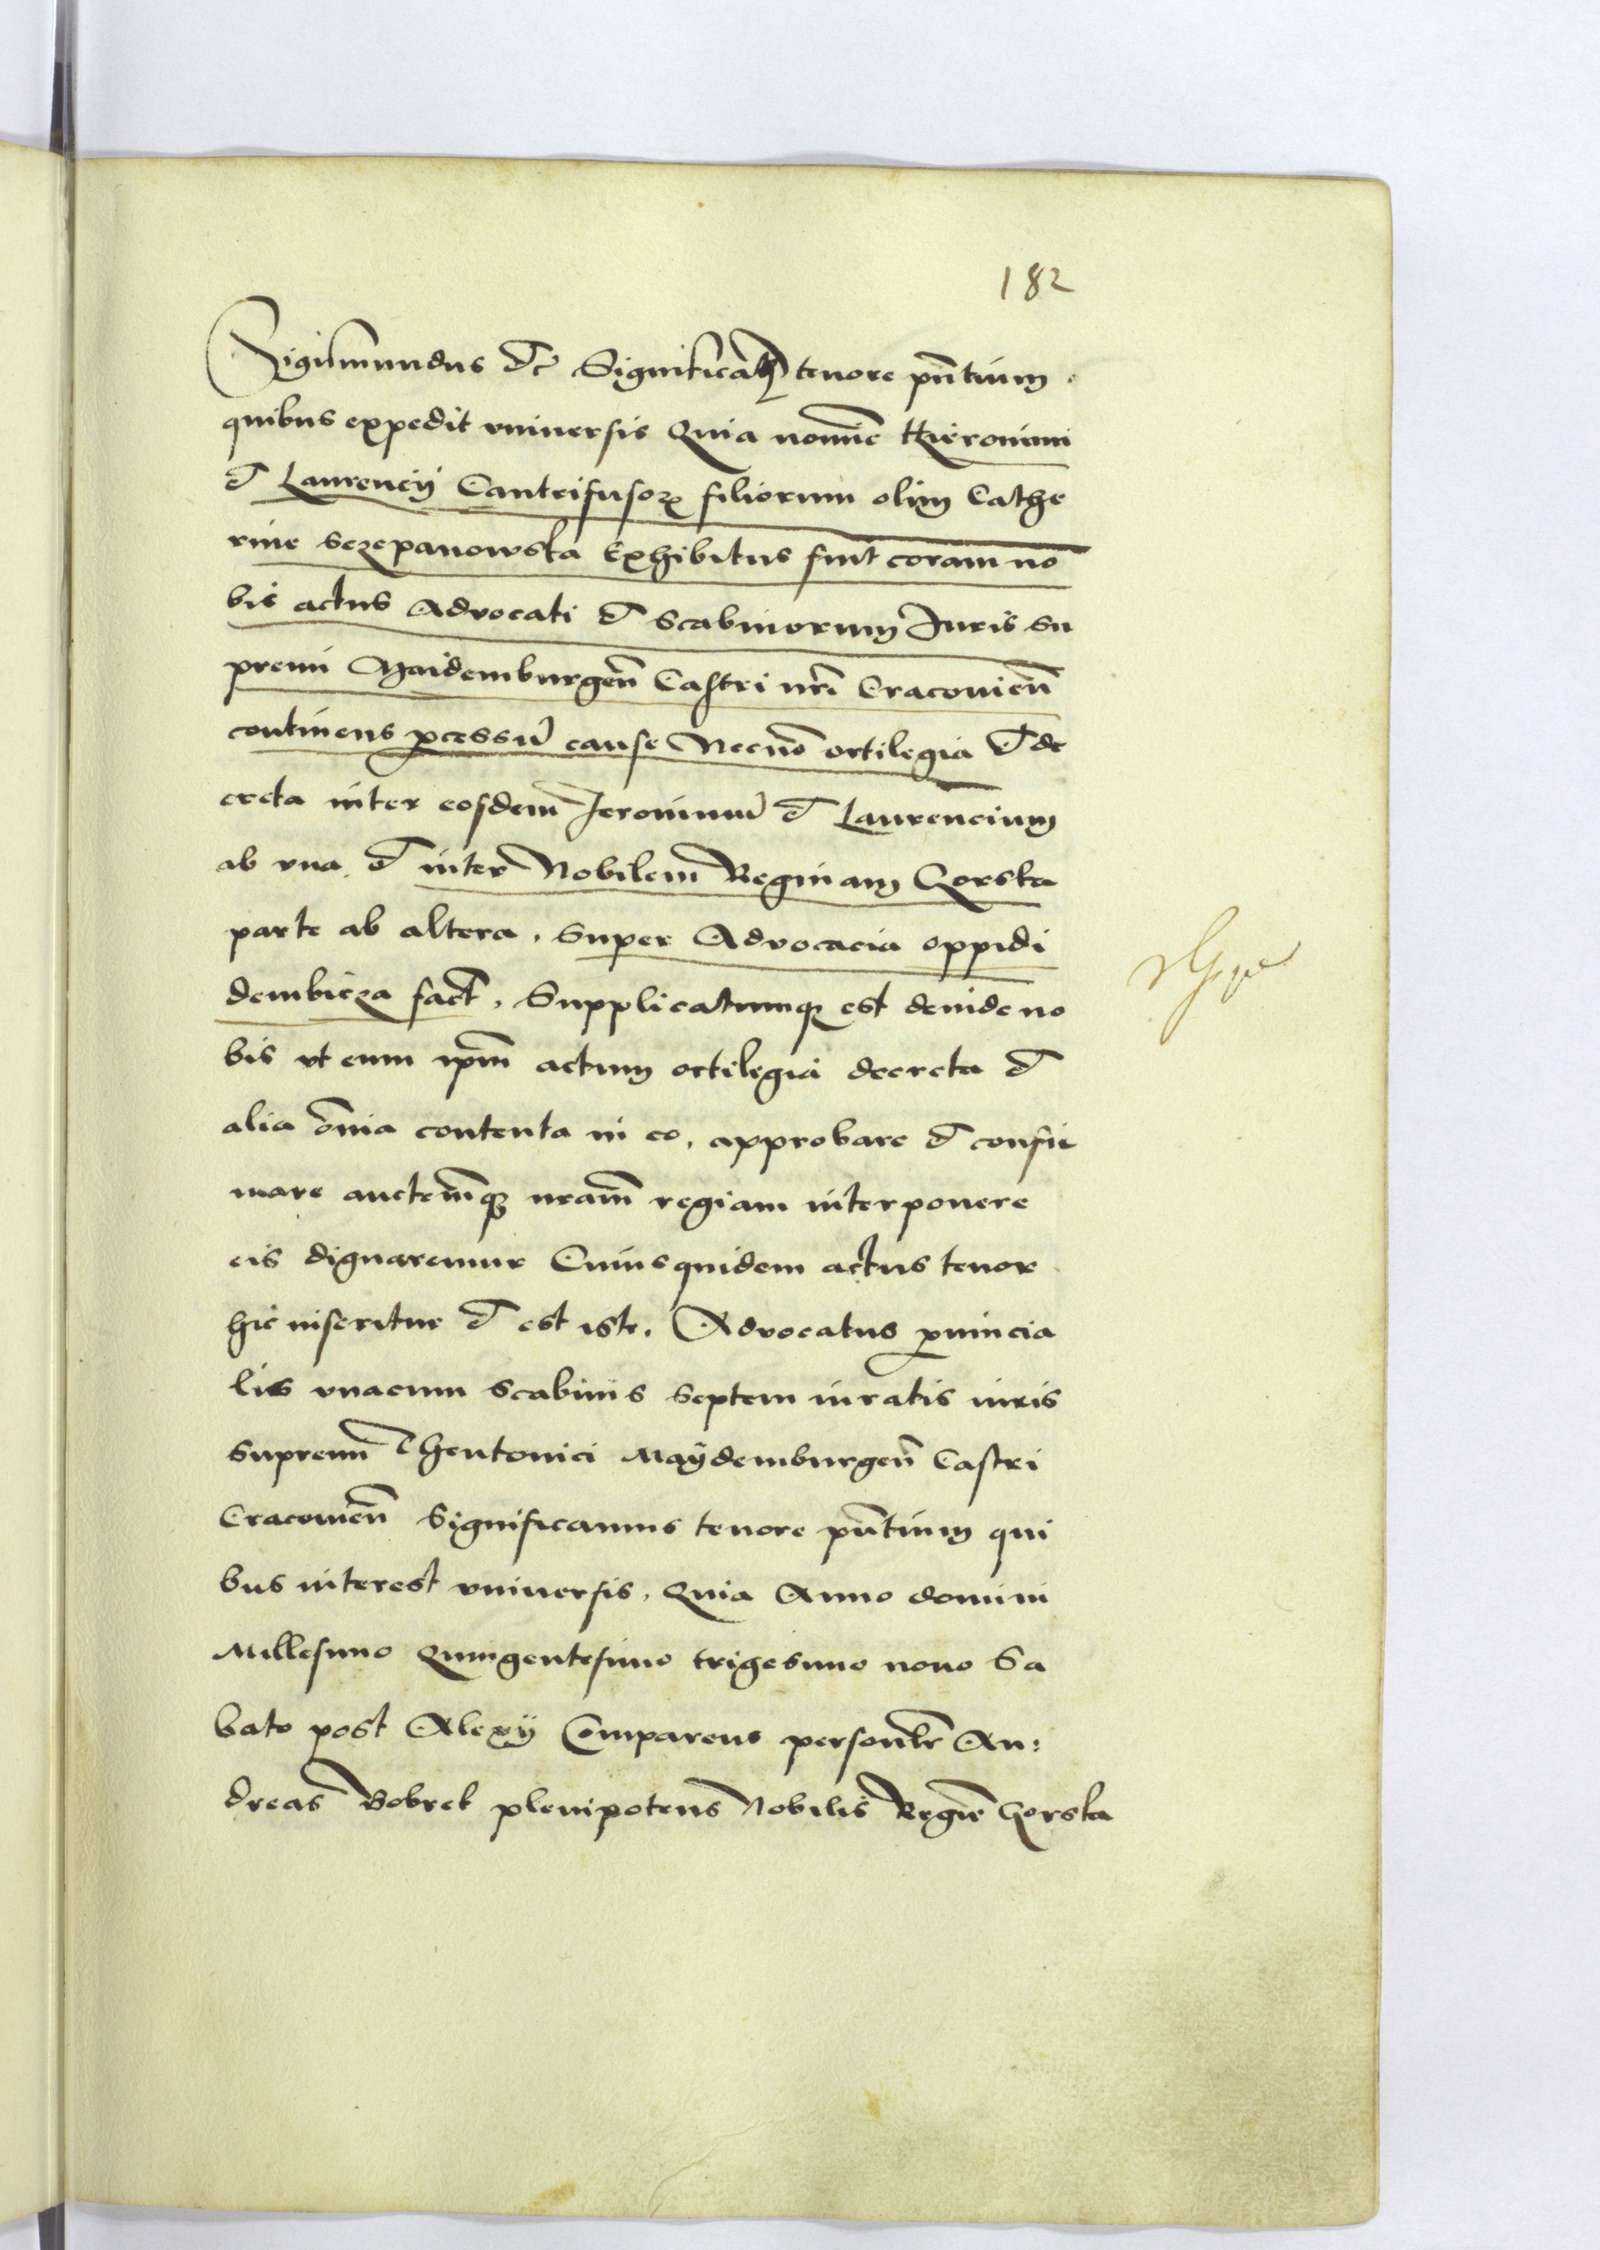 182
Sigismundus etc Significam9 tenore pñtium.
quibus expedit vniuersis Quia nomie Hieronimi
et Laurencij Cantrifusorꝝ filiorum olim Cathe
rine Sczepanowska Exhibitus fuit coram no
bis actus Advocati et Scabinorum Iuris Su
premi Maidemburgeñ Castri nrĩ Cracouieñ
continens ꝓcessũ cause Necnõ ortilegia et de
creta inter eosdem Ieronimũ et Laurencium
ab vna et inter Nobilem Reginam Gorska
parte ab altera, Super Advocacia oppidi
dembicza fact, Supplicatumqꝫ est deinde no
bis vt eum ipm̃ actum ortilegia decreta et
alia õnia contenta in eo, approbare et confir
mare auctem̃qꝫ nram̃ regiam interponere
eis dignaremur Cuiusquidem actus tenor
hic inseritur et est iste, Advocatus ꝓuincia
lis vnacum Scabinis Septem iuratis iuris
Supremi Theutonici Maÿdemburgeñ Castri
Cracouieñ Significamus tenore pñtium qui
bus interest vniuersis, Quia Anno domini
Millesimo Quingentesimo trigesimo nono Sa
bato post Alexÿ Comparens personlr̃ An:
dreas Bobrek plenipotens Nobilis Regiẽ Gorska